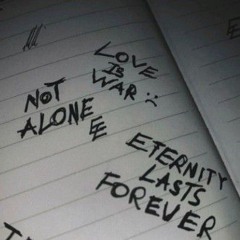 LOVE
IS
WAR :(
NOT
ALONE
ETERNITY
LASTS
FOREVER